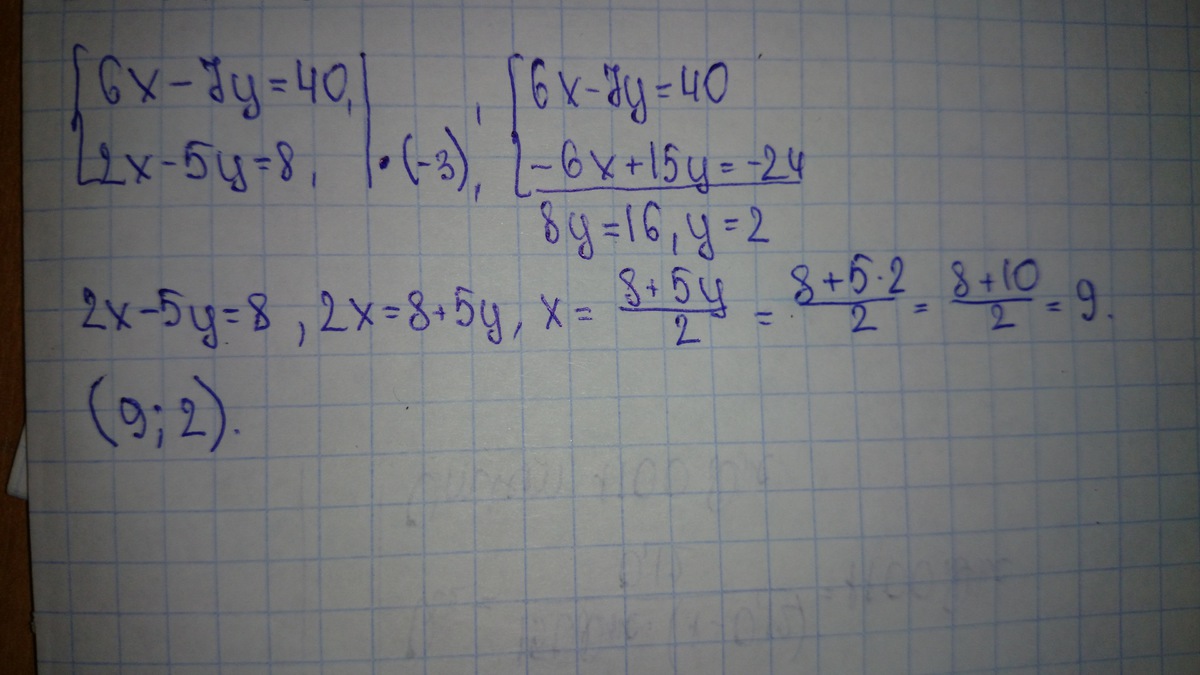 {6x-7y=40, | ; {6x-7y=40
{2x-5y=8, | •(-3), {-6x+15y=-24
8y=16, y=2
2x-5y=8, 2x=8+5y, x= (8+5y)/2 = (8+5·2)/2 = (8+10)/2 = 9.
(9; 2).